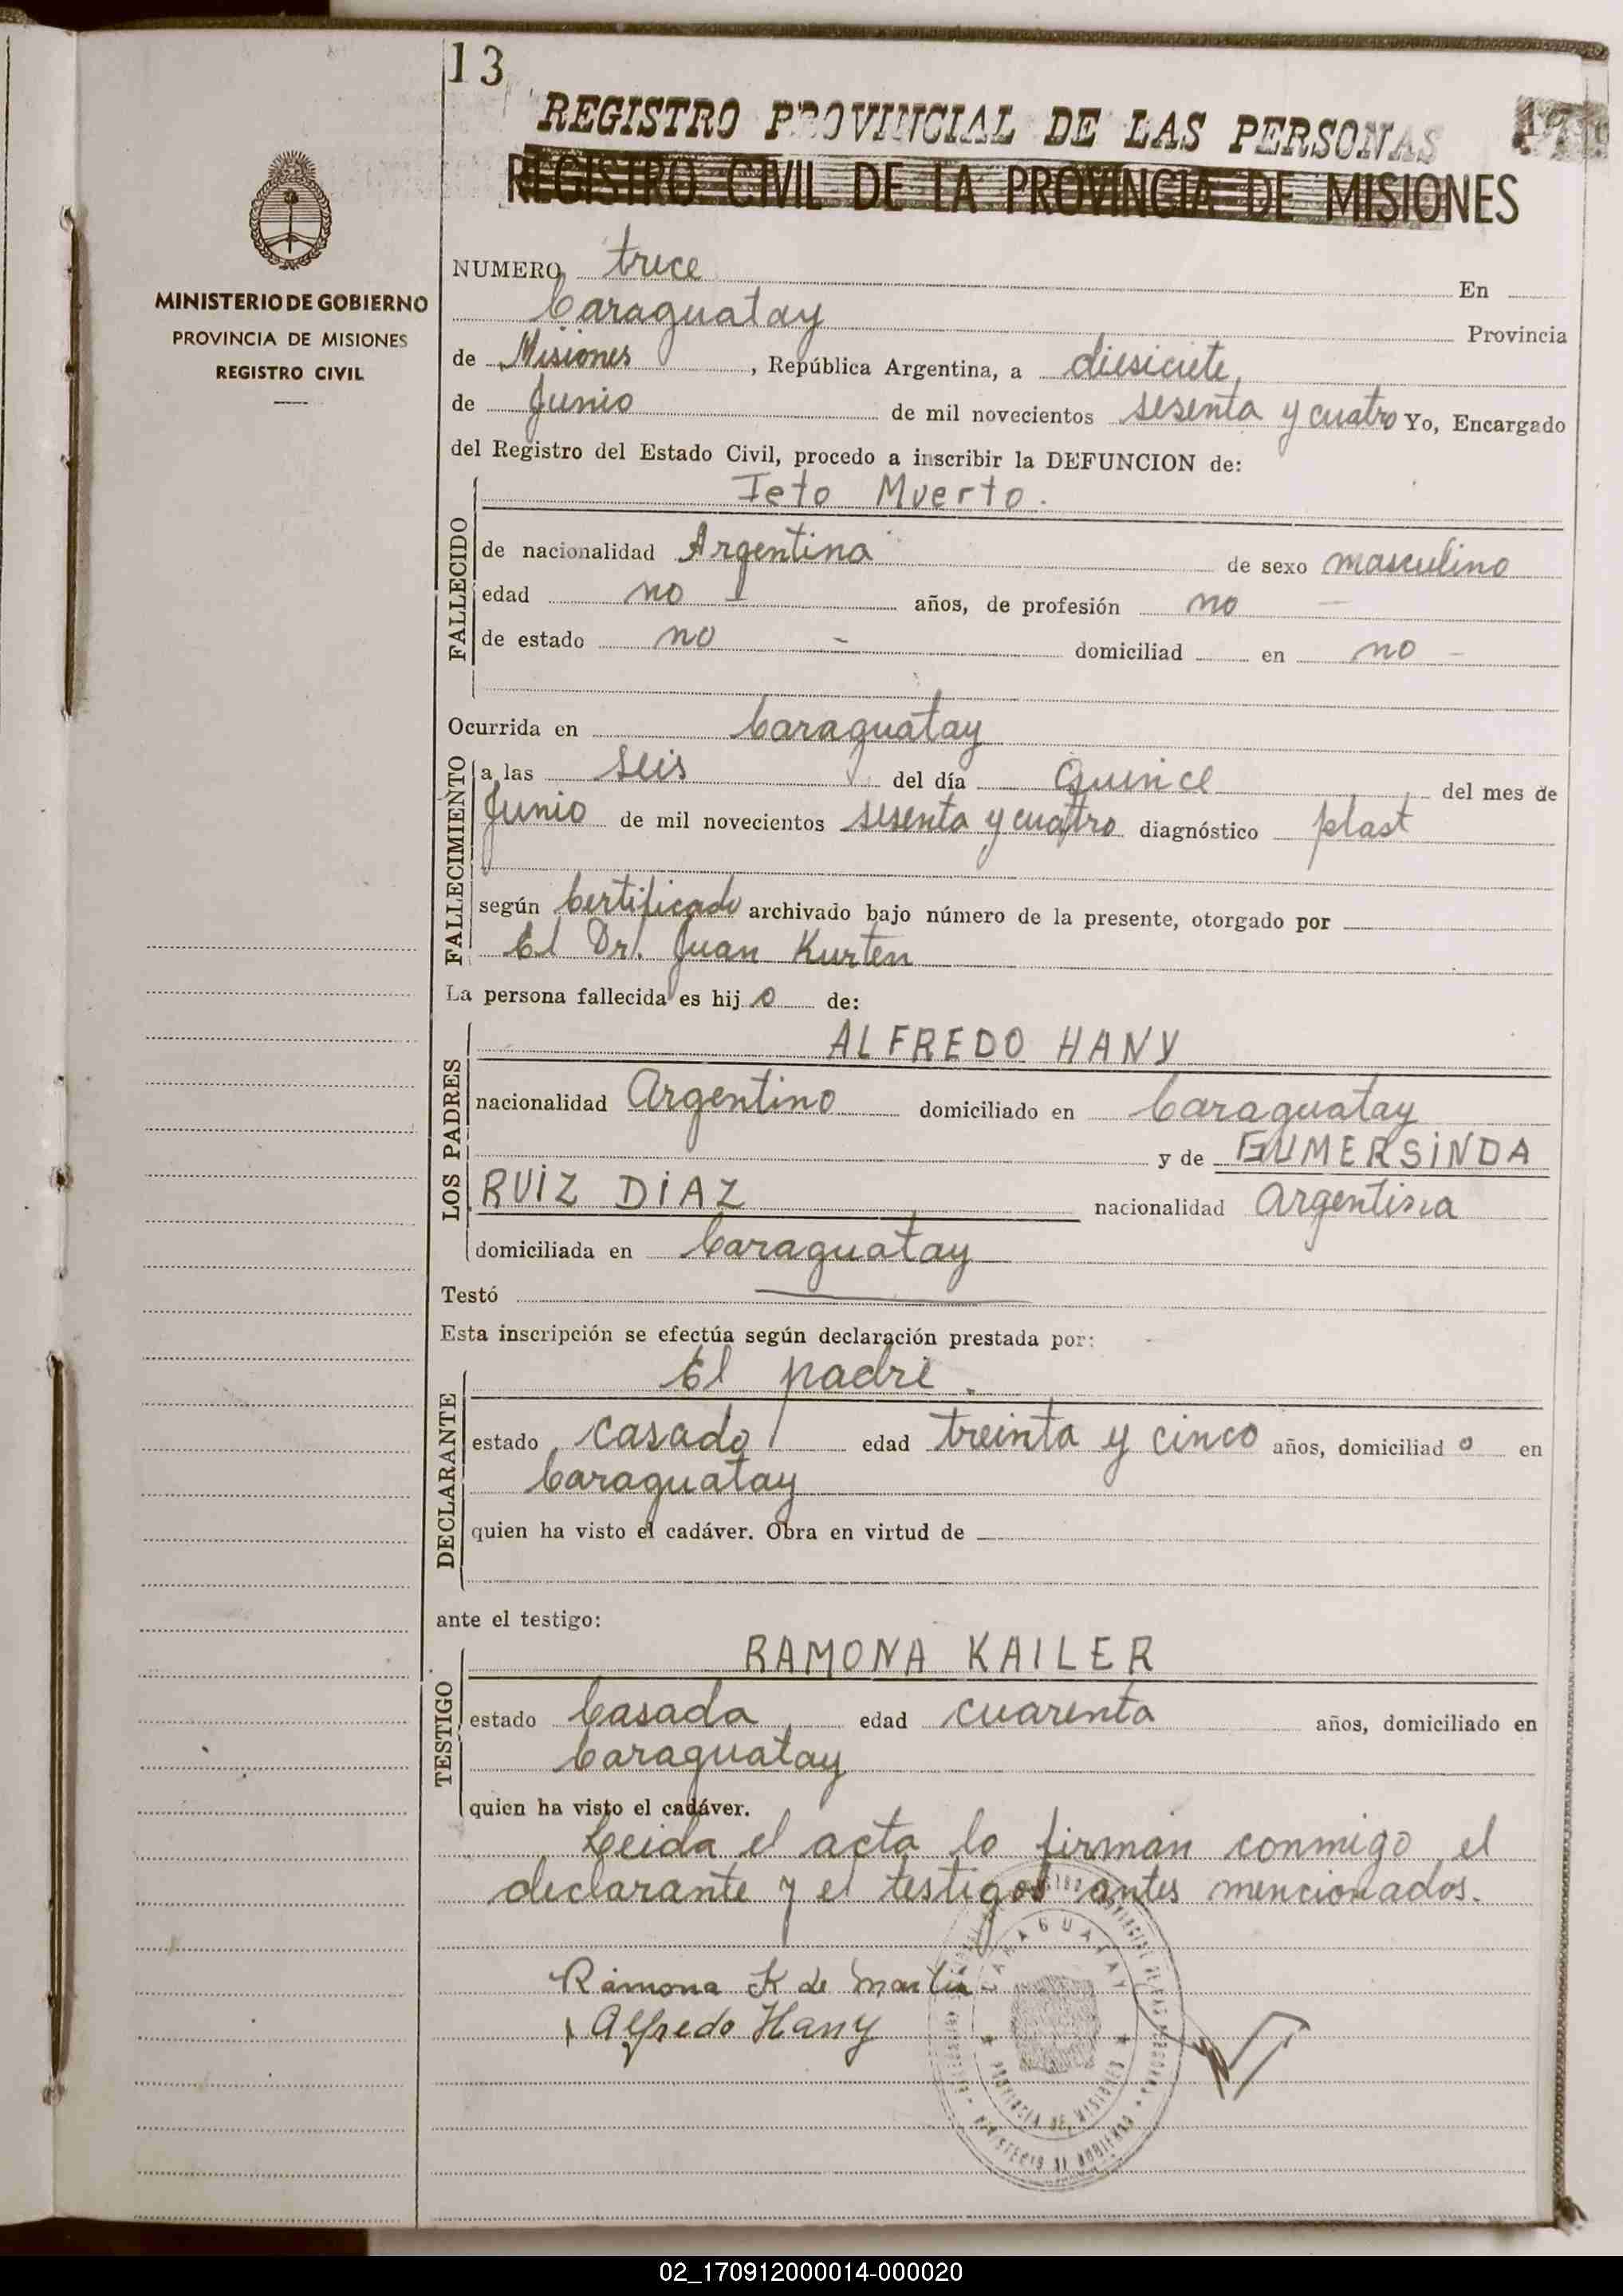 13
REGISTRO PROVINCIAL DE LAS PERSONAS
REGISTRO CIVIL DE LA PROVINCIA DE MISIONES
MINISTERIO DE GOBIERNO
PROVINCIA DE MISIONES
REGISTRO CIVIL
NUMERO trece En
Caraguatay Provincia
de Misiones, República Argentina, a diesiciete,
de Junio de mil novecientos sesenta y cuatro Yo, Encargado
del Registro del Estado Civil, procedo a inscribir la DEFUNCION de:
Feto Muerto.
FALLECIDO
de nacionalidad Argentina de sexo masculino
edad no años, de profesión no
de estado no domiciliad en no
Ocurrida en Caraguatay
FALLECIMIENTO
a las seis del día Quince del mes de
Junio de mil novecientos sesenta y cuatro diagnóstico plast
según Certificado archivado bajo número de la presente, otorgado por
El Dr. Juan Kurten
La persona fallecida es hijo de:
LOS PADRES
ALFREDO HANY
nacionalidad Argentino domiciliado en Caraguatay
y de GUMERSINDA
RUIZ DIAZ nacionalidad Argentina
domiciliada en Caraguatay
Testó
Esta inscripción se efectúa según declaración prestada por:
DECLARANTE
El padre.
estado casado edad treinta y cinco años, domiciliado en
Caraguatay
quien ha visto el cadáver. Obra en virtud de
ante el testigo:
TESTIGO
RAMONA KAILER
estado Casada edad cuarenta años, domiciliado en
Caraguatay
quien ha visto el cadáver.
Leida el acta lo firman conmigo el
declarante y el testigos antes mencionados.
Ramona K de Martin
Alfredo Hany
CARAGUATAY
PROVINCIA DE MISIONES
MINISTERIO DE GOBIERNO
02_170912000014-000020